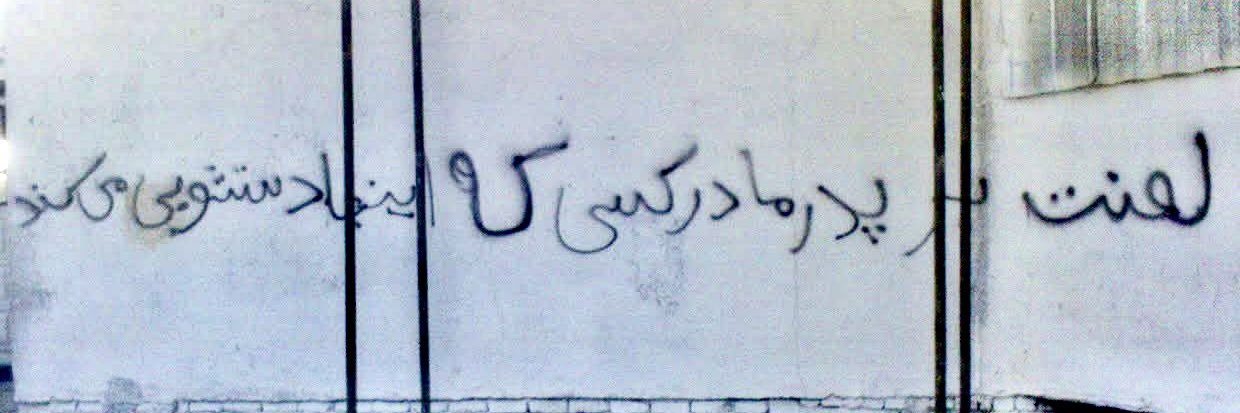 لعنت بر پدر مادر کسی که اینجا دستشویی می کند